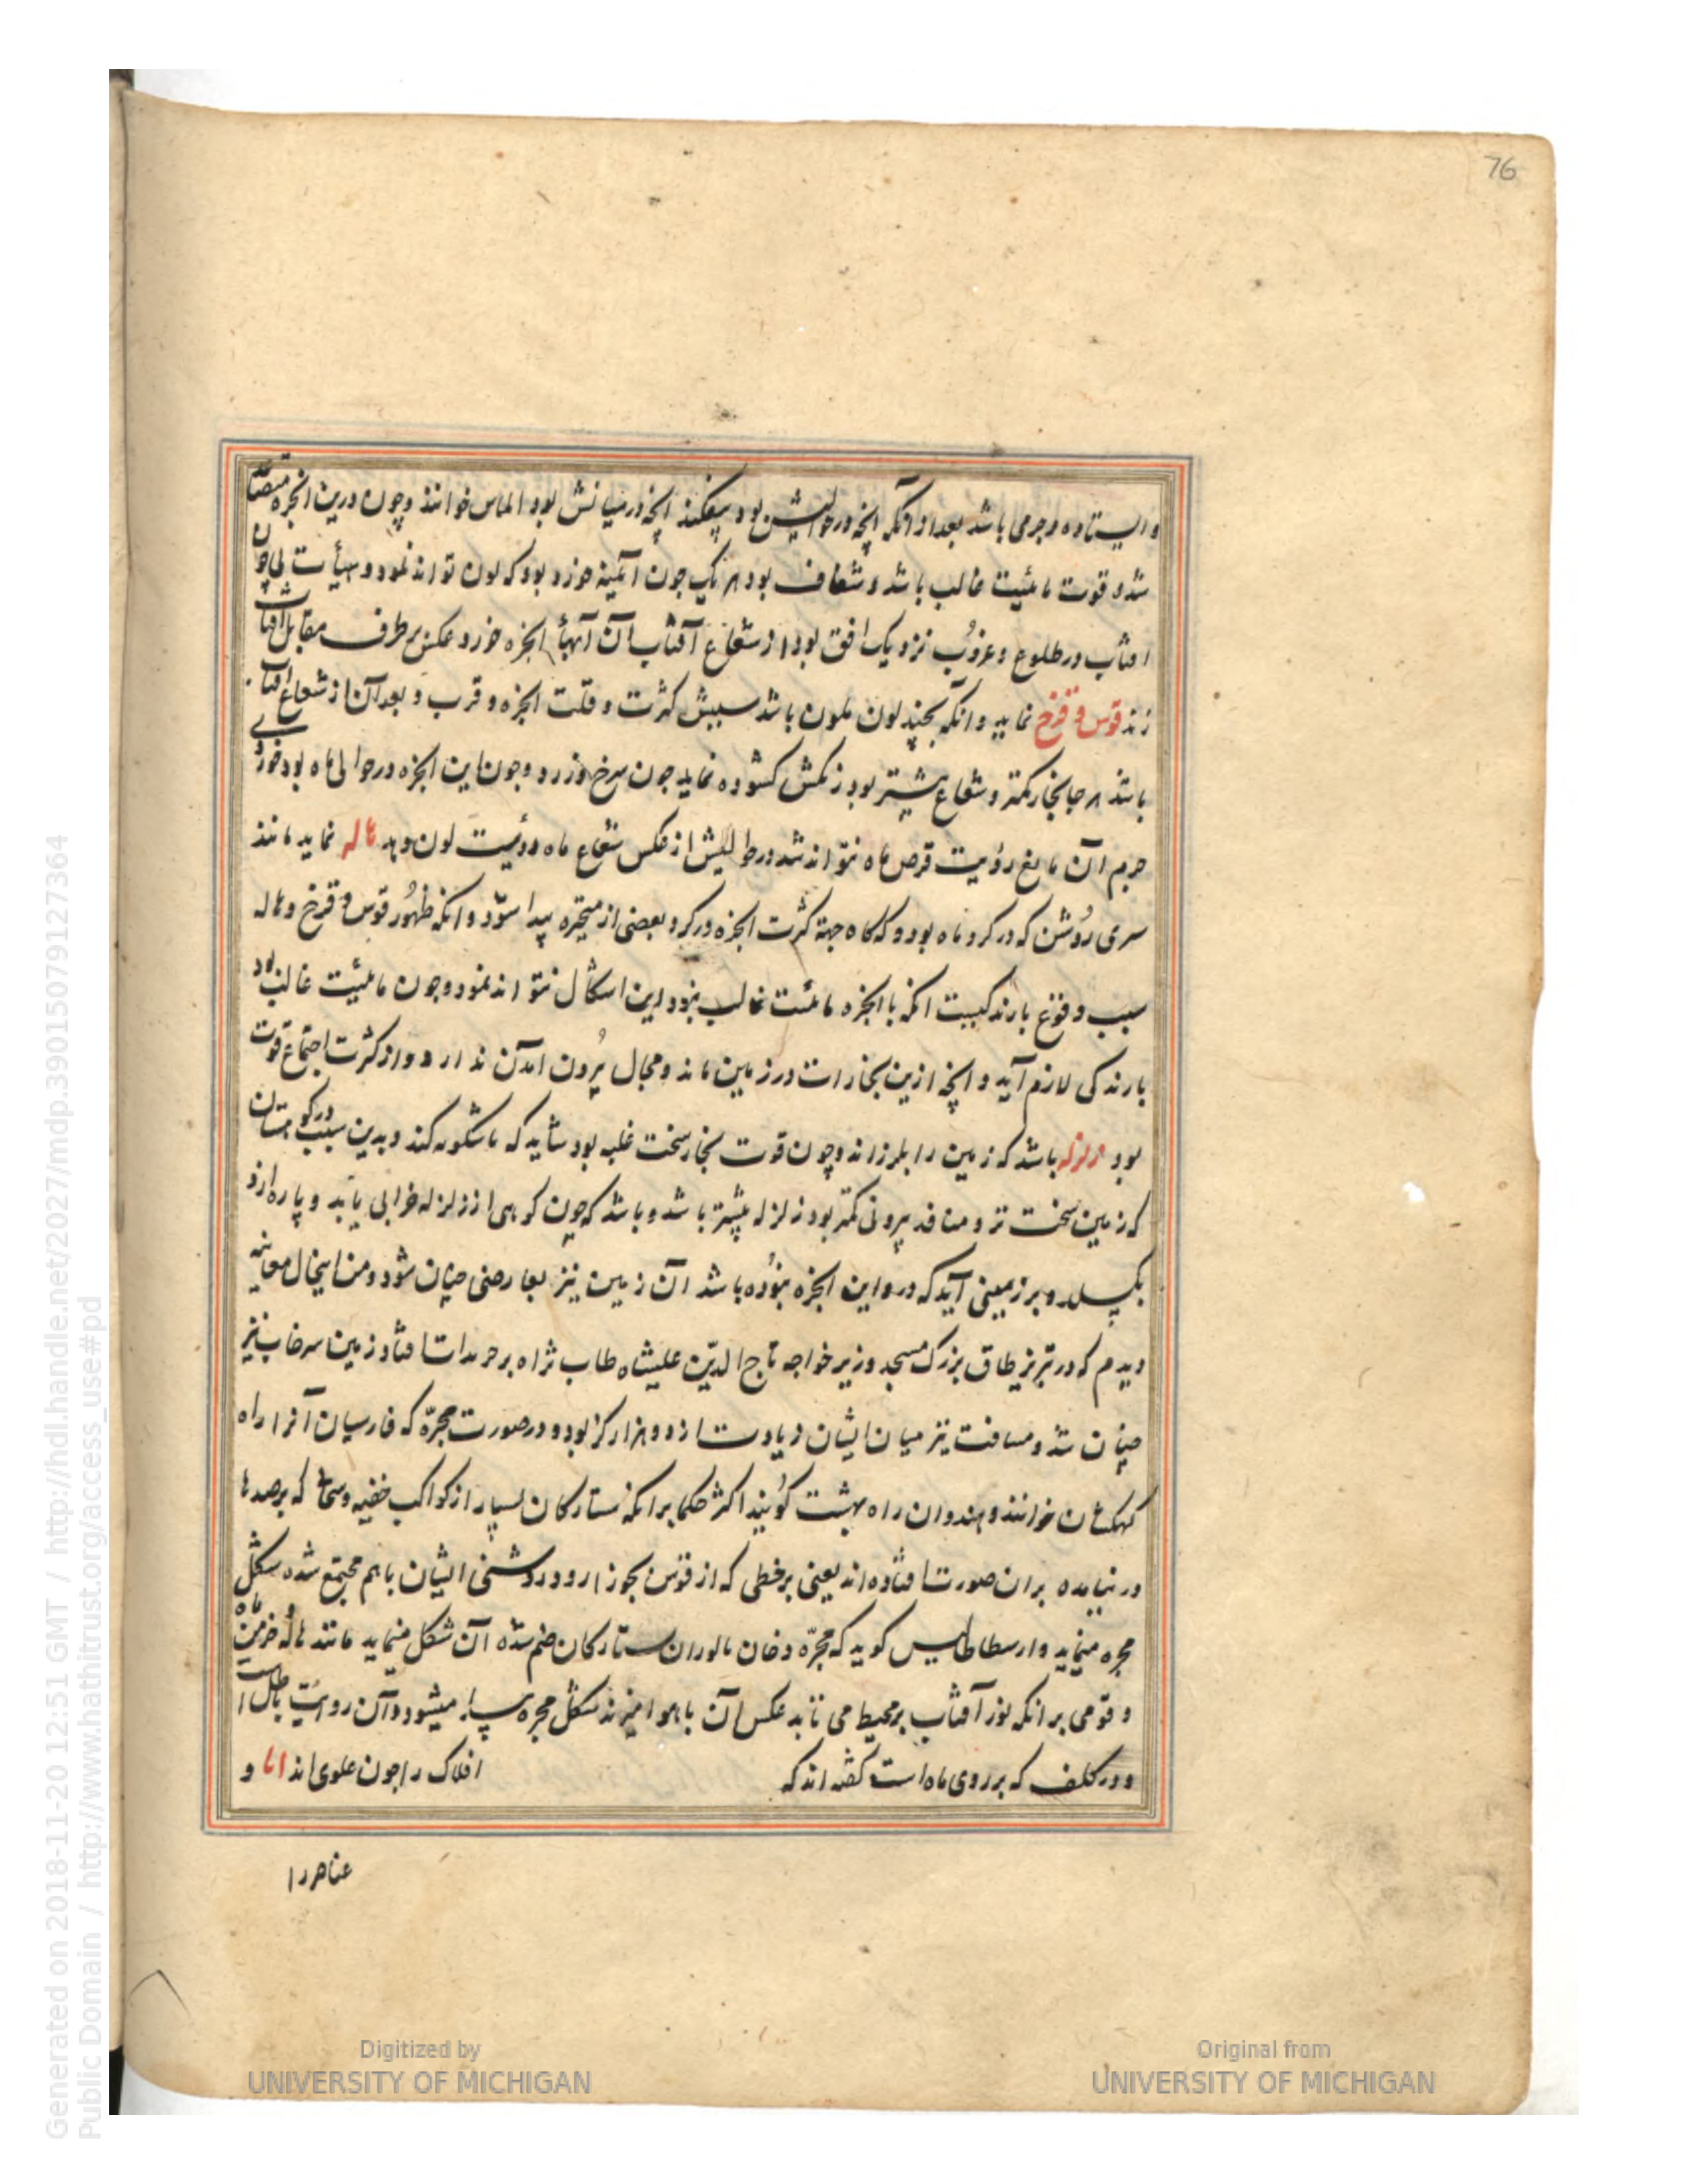 76
و ایستاده و جرمی باشد بعد از آنکه آنچه در حوالیش بود بیفکند آنچه در میانش بود الماس خوانند و چون درین ابخره متصاعد
شد و قوت مائیت غالب باشد و شفاف بود هر یک چون آئینه خرد بود که لون تواند نمود و هیأت نی چون
افتاب در طلوع و غروب نزدیک افق بود از شعاع آفتاب آن ابخره خرد و عکس بر طرف مقابل افتاب
زند قوس و قزح نماید و انکه بچند لون ملون باشد سببش کثرت و قلت ابخره و قرب و بعد آن از شعاع افتاب
باشد هر جا بخار کمتر و شعاع بیشتر بود رنکش کشوده نماید چون سرخ و زرد و چون این ابخره در حوالی ماه بود
جرم آن مانع رؤیت قرص ماه نتواند شد در حوالیش از عکس شعاع ماه رؤیت لون دهد هاله نماید مانند
سری روشن که در کرد ماه بود و که کاه جهة کثرت ابخره در کرد بعضی از متحیره پیدا شود و انکه ظهور قوس و قزح و هاله
سبب وقوع بارندکیست انکه با ابخره مائیت غالب نبود این اشکال نتواند نمود و چون مائیت غالب بود
بارندکی لازم آید و انچه ازین بخارات در زمین ماند و مجال بیرون امدن ندارد و از کثرت اجتماع قوت
بود زلزله باشد که زمین را بلرزاند و چون قوت بخار سخت غلبه بود شاید که ماشکوبه کند و بدین سبب در کوهستان
که زمین سخت تر و منافد بیرونی کمتر بود زلزله بیشتر باشد و باشد که چون کوهی از زلزله خرابی یابد و پاره ازو
بکسلد و بر زمینی آید که درو این ابخره نبوده باشد آن زمین نیز بعارضی جنبان شود و من اینحال معاینه
دیدم که در تبریز طاق بزرک مسجد وزیر خواجه تاج الدین علیشاه طاب ثراه افتاد زمین سرخاب نیز
جنبان شد و مسافت نیز میان ایشان زیادت از دو هزار کز بود و در صورت مجرّه که فارسیان آنرا راه
کهکشان خوانند و هندوان راه بهشت کویند اکثر حکما برانکه ستارکان بسیار از کواکب خفیه و سحابی که برصدها
در نیامده بران صورت افتاده اند یعنی بر خطی که از قوس بجوزا رود و روشنی ایشان باهم مجتمع شده شکل
مجره مینماید و ارسطاطالیس کوید که مجرّه دخان بالوران ستارکان ضم شده آن شکل مینماید مانند هاله و خرمن ماه
و قومی برانکه نور آفتاب بر محیط می تابد عکس آن با هوا امیزند شکل مجره پیدا میشود و آن روایت باطل است
و در کلف که بر روی ماه است کفته اند که افلاک را چون علوی اند ابا و
عناصر را
Generated on 2018-11-20 12:51 GMT / http://hdl.handle.net/2027/mdp.39015079127364
Public Domain / http://www.hathitrust.org/access_use#pd
Digitized by
UNIVERSITY OF MICHIGAN
Original from
UNIVERSITY OF MICHIGAN